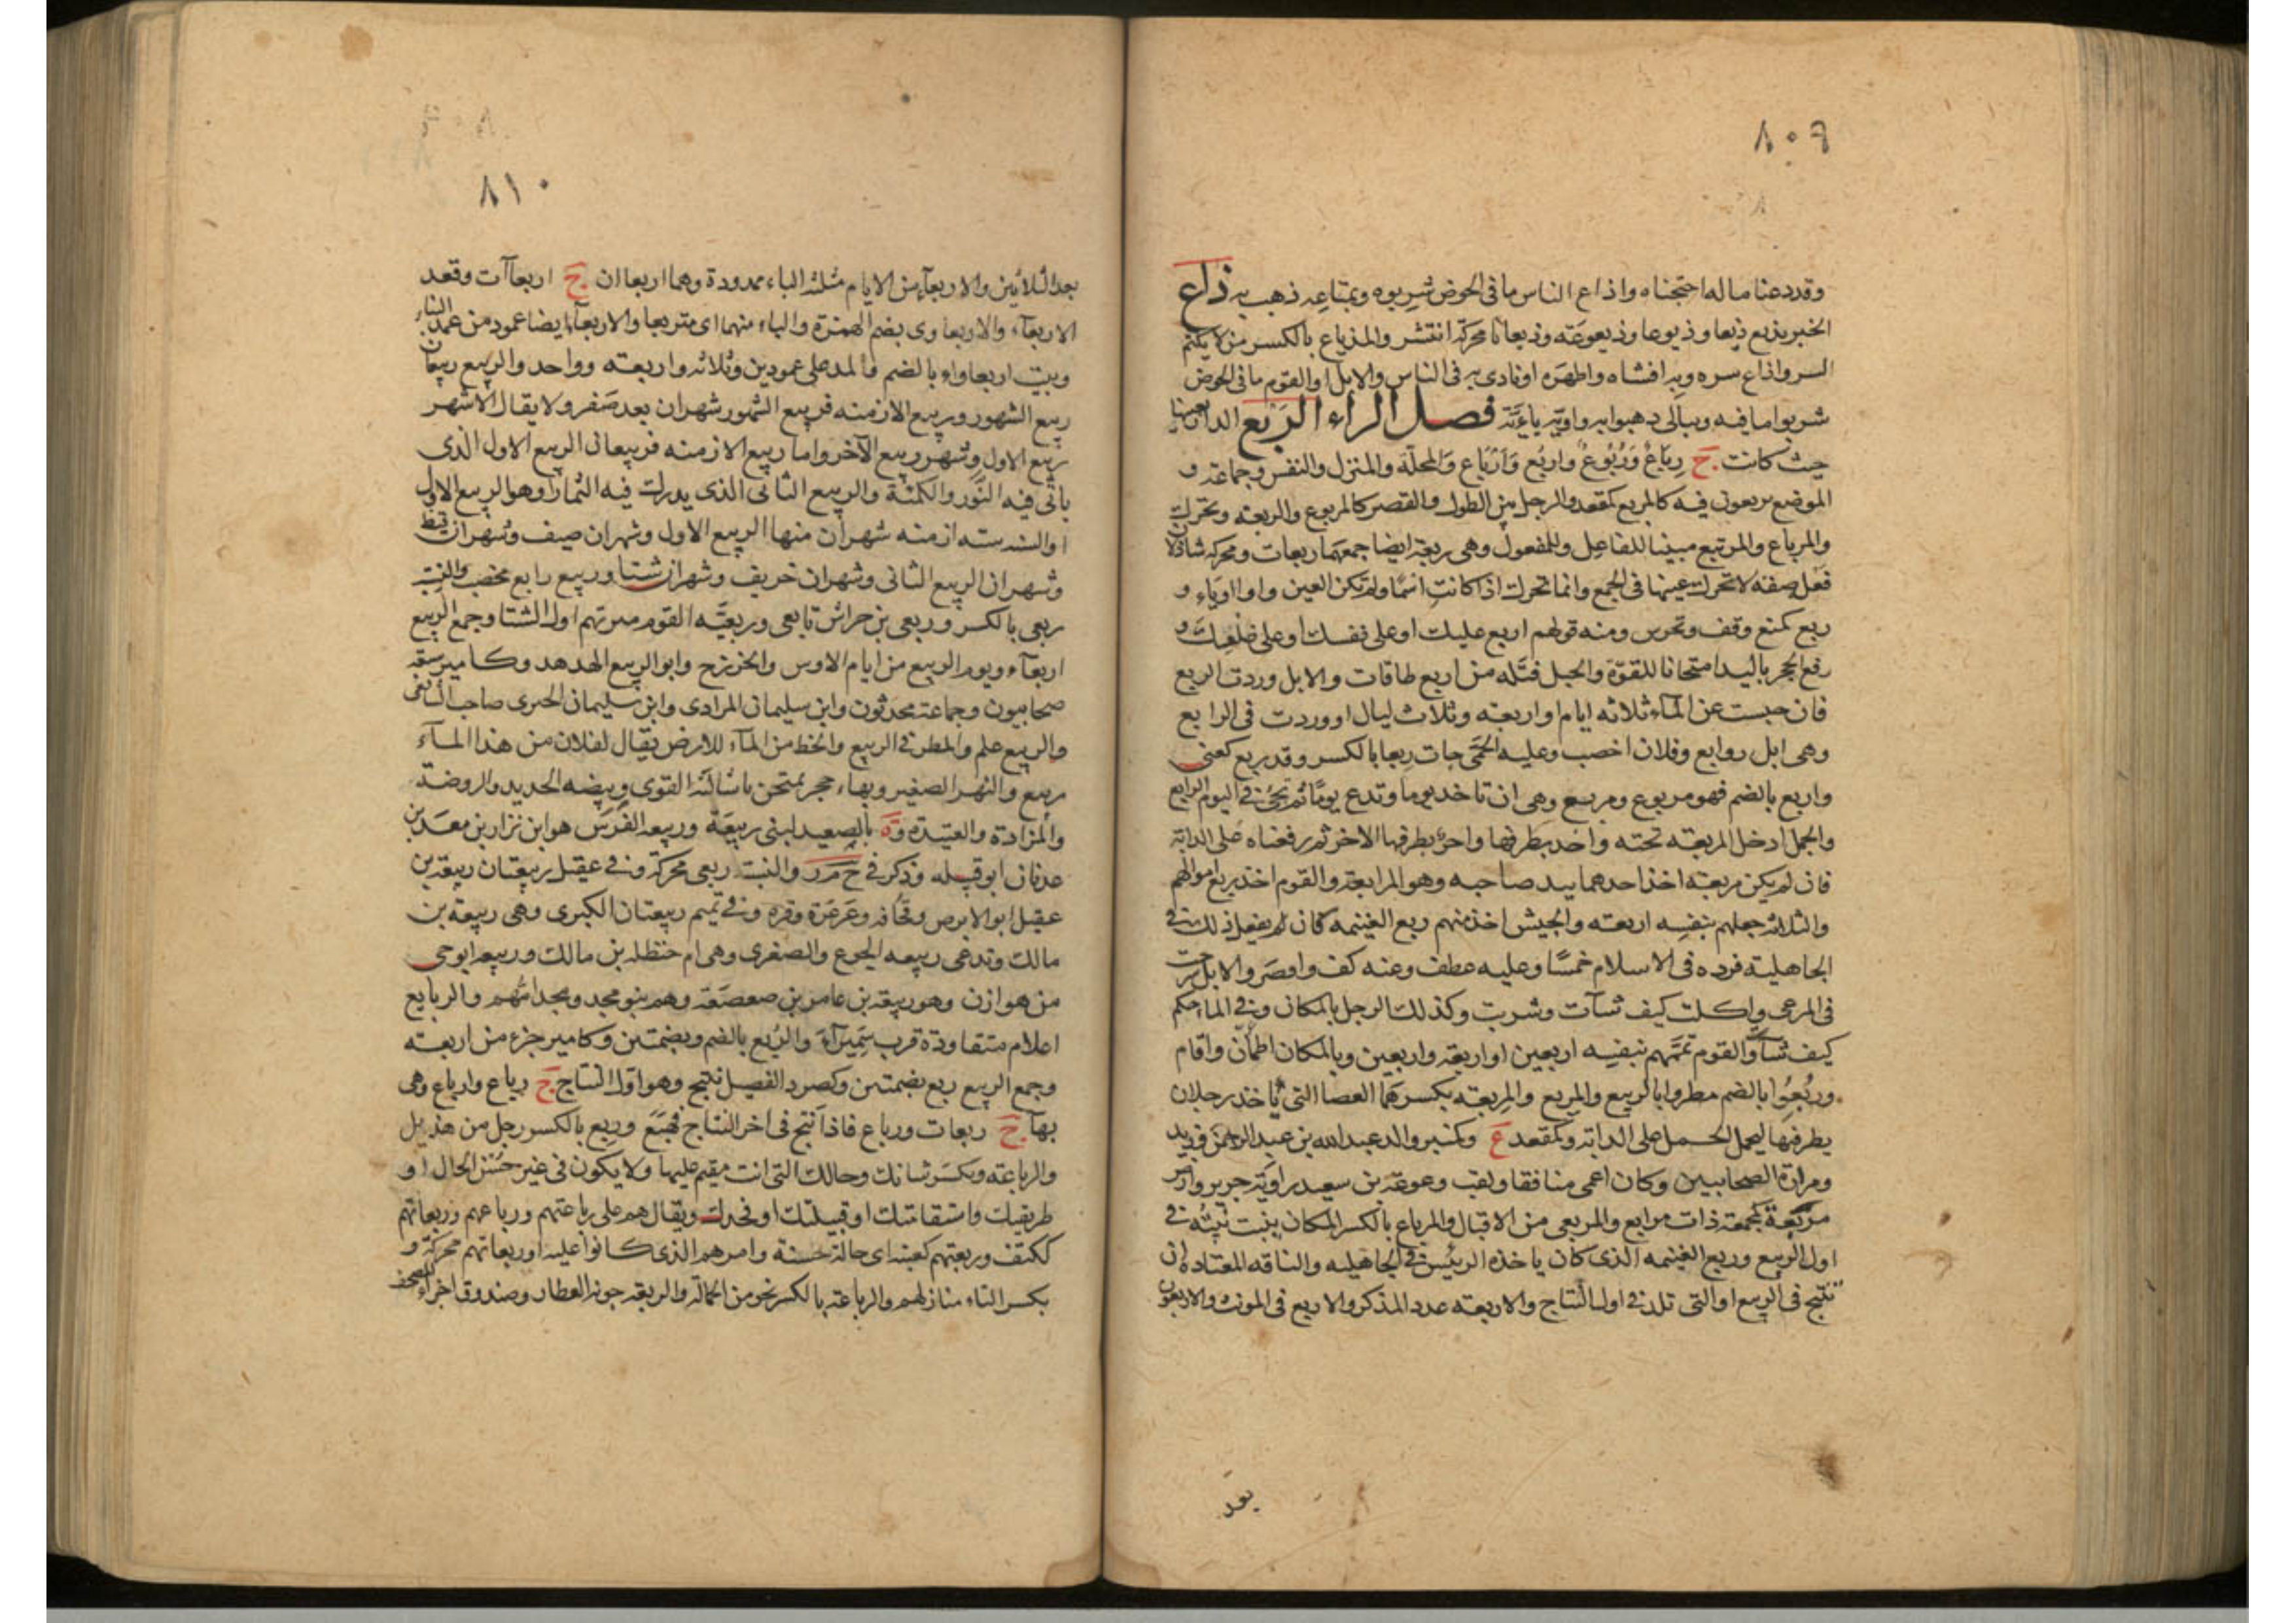 ٨٠٩
وقد دعنا ماله اجتحناه واذاع الناس ما فى الحوض شربوه وبمتاعه ذهب به ذاع
الخبر يذيع ذيعا وذيوعا وذيعوعة وذيعانا محركة انتشر والمذياع بالكسر من لا يكتم
السر واذاع سره وبه افشاه واظهره او نادى به فى الناس والابل او القوم ما فى الحوض
شربوا ما فيه وبمالى ذهبوا به واويه ياءية فصل الراء الربع الدار بعينها
حيث كانت ج رباع وربوع واربع وارباع والمحلة والمنزل والنفس وجماعة و
الموضع يرتبعون فيه كالمربع كمقعد والرجل بين الطول والقصر كالمربوع والربعة ويحرك
والمرباع والمرتبع مبنيا للفاعل وللمفعول وهى ربعة ايضا جمعهما ربعات ومحركة شاذ لان
فعل صفة لا تحرك عينها فى الجمع وانما تحرك اذا كانت اسما ولم تكن العين واوا او ياء و
ربع كمنع وقف وتحرس ومنه قولهم اربع عليك او على نفسك او على ضلعك و
رفع الحجر باليد امتحانا للقوة والحبل فتله من اربع طاقات والابل وردت الربع
فان حبست عن الماء ثلاثه ايام او اربعه وثلاث ليال او وردت فى الرابع
وهى ابل روابع وفلان اخصب وعليه الحمى جات ربعا بالكسر وقد ربع كعنى
واربع بالضم فهو مربوع ومربع وهى ان تاخذ يوما وتدع يوما ثم تجئ فى اليوم الرابع
والجمل ادخل المربعة تحته واخذ بطرفها واخر بطرفها الاخر ثم رفعاه على الدابة
فان لم يكن مربعة اخذ احدهما بيد صاحبه وهو المرابعة والقوم اخذ ربع اموالهم
والثلاثه جعلهم بنفسه اربعه والجيش اخذ منهم ربع الغنيمه كان يفعل ذلك فى
الجاهلية فرده فى الاسلام خمسا وعليه عطف وعنه كف واقصر والابل سرحت
فى المرعى واكلت كيف شآت وشربت وكذلك الرجل بالمكان وفى الما تحكم
كيف شآ والقوم تممهم بنفسه اربعين او اربعة واربعين وبالمكان اطمأن واقام
وربعوا بالضم مطروا بالربيع والمربع والمربعة بكسرهما العصا التى يأخذ رجلان
بطرفيها ليحمل الحمل على الدابة وكمقعد ع وكمنبر والد عبد الله بن عبد الرحمن وزيد
ومرارة الصحابيين وكان اعمى منافقا ولقب وعوعة بن سعيد راوية جرير وارض
مربعة كمجمعة ذات مرابيع والمربعى من الاقبال والمرباع بالكسر المكان ينبت نبته فى
اول الربيع وربع الغنيمه الذى كان ياخذه الرئيس فى الجاهليه والناقه المعتادة ان
تنتج فى الربيع او التى تلد فى اول النتاج والاربعه عدد المذكر والاربع فى المونث والاربعون
بعد
٨١٠
بعد الثلاثين والاربعآ من الايام مثلثة الباء ممدودة وهما اربعاان ج اربعاآت وقعد
الاربعآء والاربعاوى بضم الهمزة والباء منهما اى متربعا والاربعآ ايضا عمود من عمد البنا
وبيت اربعاواء بالضم والمد على عمودين وثلاثه واربعه وواحد والربيع ربيعان
ربيع الشهور وربيع الازمنه فربيع الشهور شهران بعد صفر ولا يقال الا شهر
ربيع الاول وشهر ربيع الآخر واما ربيع الازمنه فربيعان الربيع الاول الذى
ياتى فيه النور والكمئة والربيع الثانى الذى يدرك فيه الثمار او هو الربيع الاول
او السنة ستة ازمنه شهران منها الربيع الاول وشهران صيف وشهران قيظ
وشهران الربيع الثانى وشهران خريف وشهران شتا وربيع رابع مخصب والنسبة
ربعى بالكسر وربعى بن حراش تابعى وربعية القوم ميرتهم اول الشتا وجمع الربيع
اربعآء ويوم الربيع من ايام الاوس والخزرج وابو الربيع الهدهد وكامير سبعة
صحابيون وجماعة محدثون وابن سليمان المرادى وابن سليمان الجيزى صاحبا الشافعى
والربيع علم والمطر فى الربيع والحظ من الماء للارض يقال لفلان من هذا الماء
ربيع والنهر الصغير وبهاء حجر يمتحن باشالته القوى وبيضه الحديد والروضة
والمزادة والعتيدة وة بالصعيد لبنى ربيعة وربيعه الفرس هو ابن نزار بن معد بن
عدنان ابو قبيله وذكر فى ح م ر والنسبة ربعى محركة وفى عقيل ربيعتان ربيعة بن
عقيل ابو الابرص وقحافه وعرعرة وقره وفى تميم ربيعتان الكبرى وهى ربيعة بن
مالك وتدعى ربيعه الجوع والصغرى وهى ام حنظله بن مالك وربيعه ابو حى
من هوازن وهو ربيعة بن عامر بن صعصعة وهم بنو مجد ومجد امهم والربايع
اعلام متقاودة قرب سميرآء والربع بالضم وبضمتين وكامير جزء من اربعه
وجمع الربيع ربع بضمتين وكصرد الفصيل ينتج وهو اول النتاج ج رباع وارباع وهى
بهآ ج ربعات ورباع فاذا نتج فى اخر النتاج فهبع وربع بالكسر رجل من هذيل
والرباعة وبكسر شانك وحالك التى انت مقيم عليها ولا يكون فى غير حسن الحال او
طريقتك واستقامتك او قبيلتك او فخذك ويقال هم على رباعتهم ورباعهم وربعاتهم
ككتف وربعتهم كعنبه اى حالة حسنة وامرهم الذى كانوا عليه او ربعاتهم محركة و
بكسر الباء منازلهم والرباعة بالكسر نحو من الحمالة والربعة جونه العطار وصندوق اجزاء المصحف